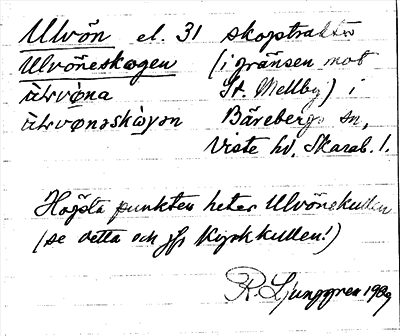 Ulvön el. 31 skogstrakter
Ulvöneskogen (i gränsen mot
St. Mellby) i
Bärebergs sn,
Viste hd, Skarab. l.
Högsta punkten heter Ulvönekullen
(se detta och jfr Kyrkkullen!)
R. Ljunggren 1909